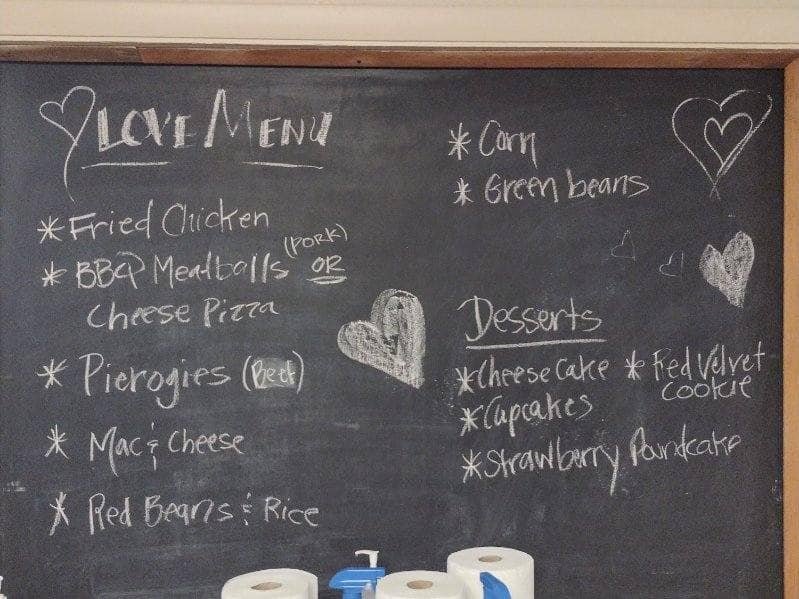 LOVE MENU
* Fried Chicken
* BBQ Meatballs (PORK) OR
Cheese Pizza
* Pierogies (Beef)
* Mac & Cheese
* Red Beans & Rice
* Corn
* Green beans
Desserts
* Cheese Cake * Red Velvet
cookie
* Cupcakes
* Strawberry Poundcake